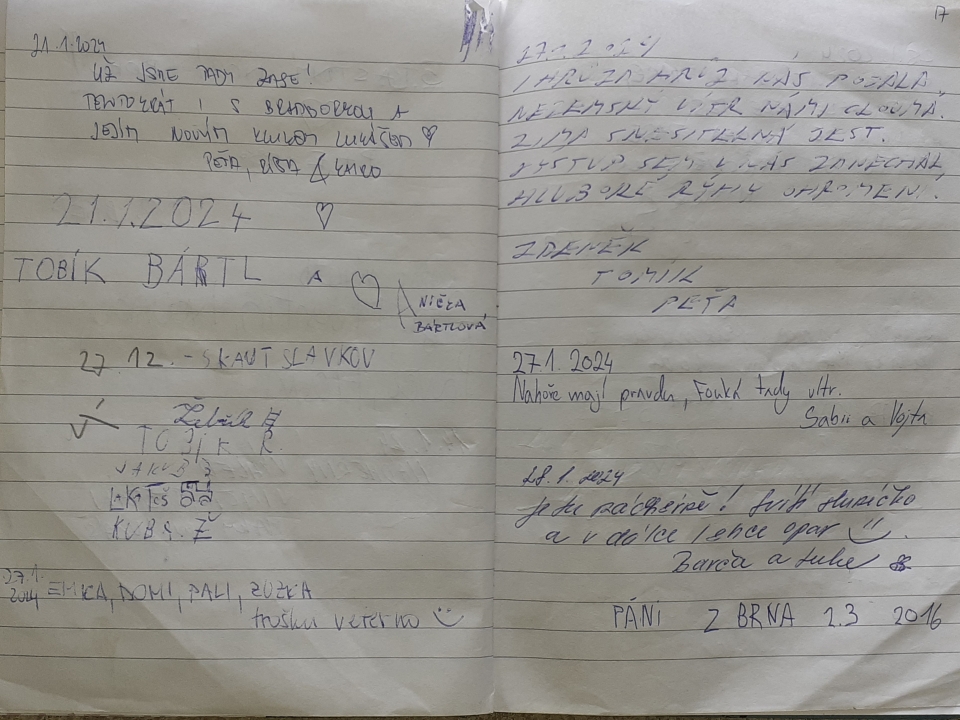 21.1.2024
UŽ JSME TADY ZASE!
TENTOKRÁT I S A
JEJÍM NOVÝM KLUKEM LUKÁŠEM ♡
PEŤA, &
21.1.2024 ♡
TOBÍK BÁRTL A ♡
ANIČKA
BÁRTLOVÁ
27.12. - SKAUT SLAVKOV
TOBIK Ř.
KUBA. Ž
27.1.
2024 EMKA, DOMI, PALI, ZUZKA
trošku veterno
17
27.1.2024
I HRŮZA HRŮZ NÁS POJALA,
NEJEMSNÝ VÍTR NÁMI CLOUMÁ.
ZIMA SNESITELNÝ JEST.
VÝSTUP SEM V NÁS ZANECHAL,
HLUBOKÉ RÝHY OHROMENÍ.
ZDENĚK
TOMÍK
PEŤA
27.1. 2024
Nahoře mají pravdu, Fouká tady vítr.
Sabii a Vojta
28.1.2024
Je tu nádherně! Svítí sluníčko
a v dálce lehce opar
Barča a Luke
PÁNI Z BRNA 2.3 2016